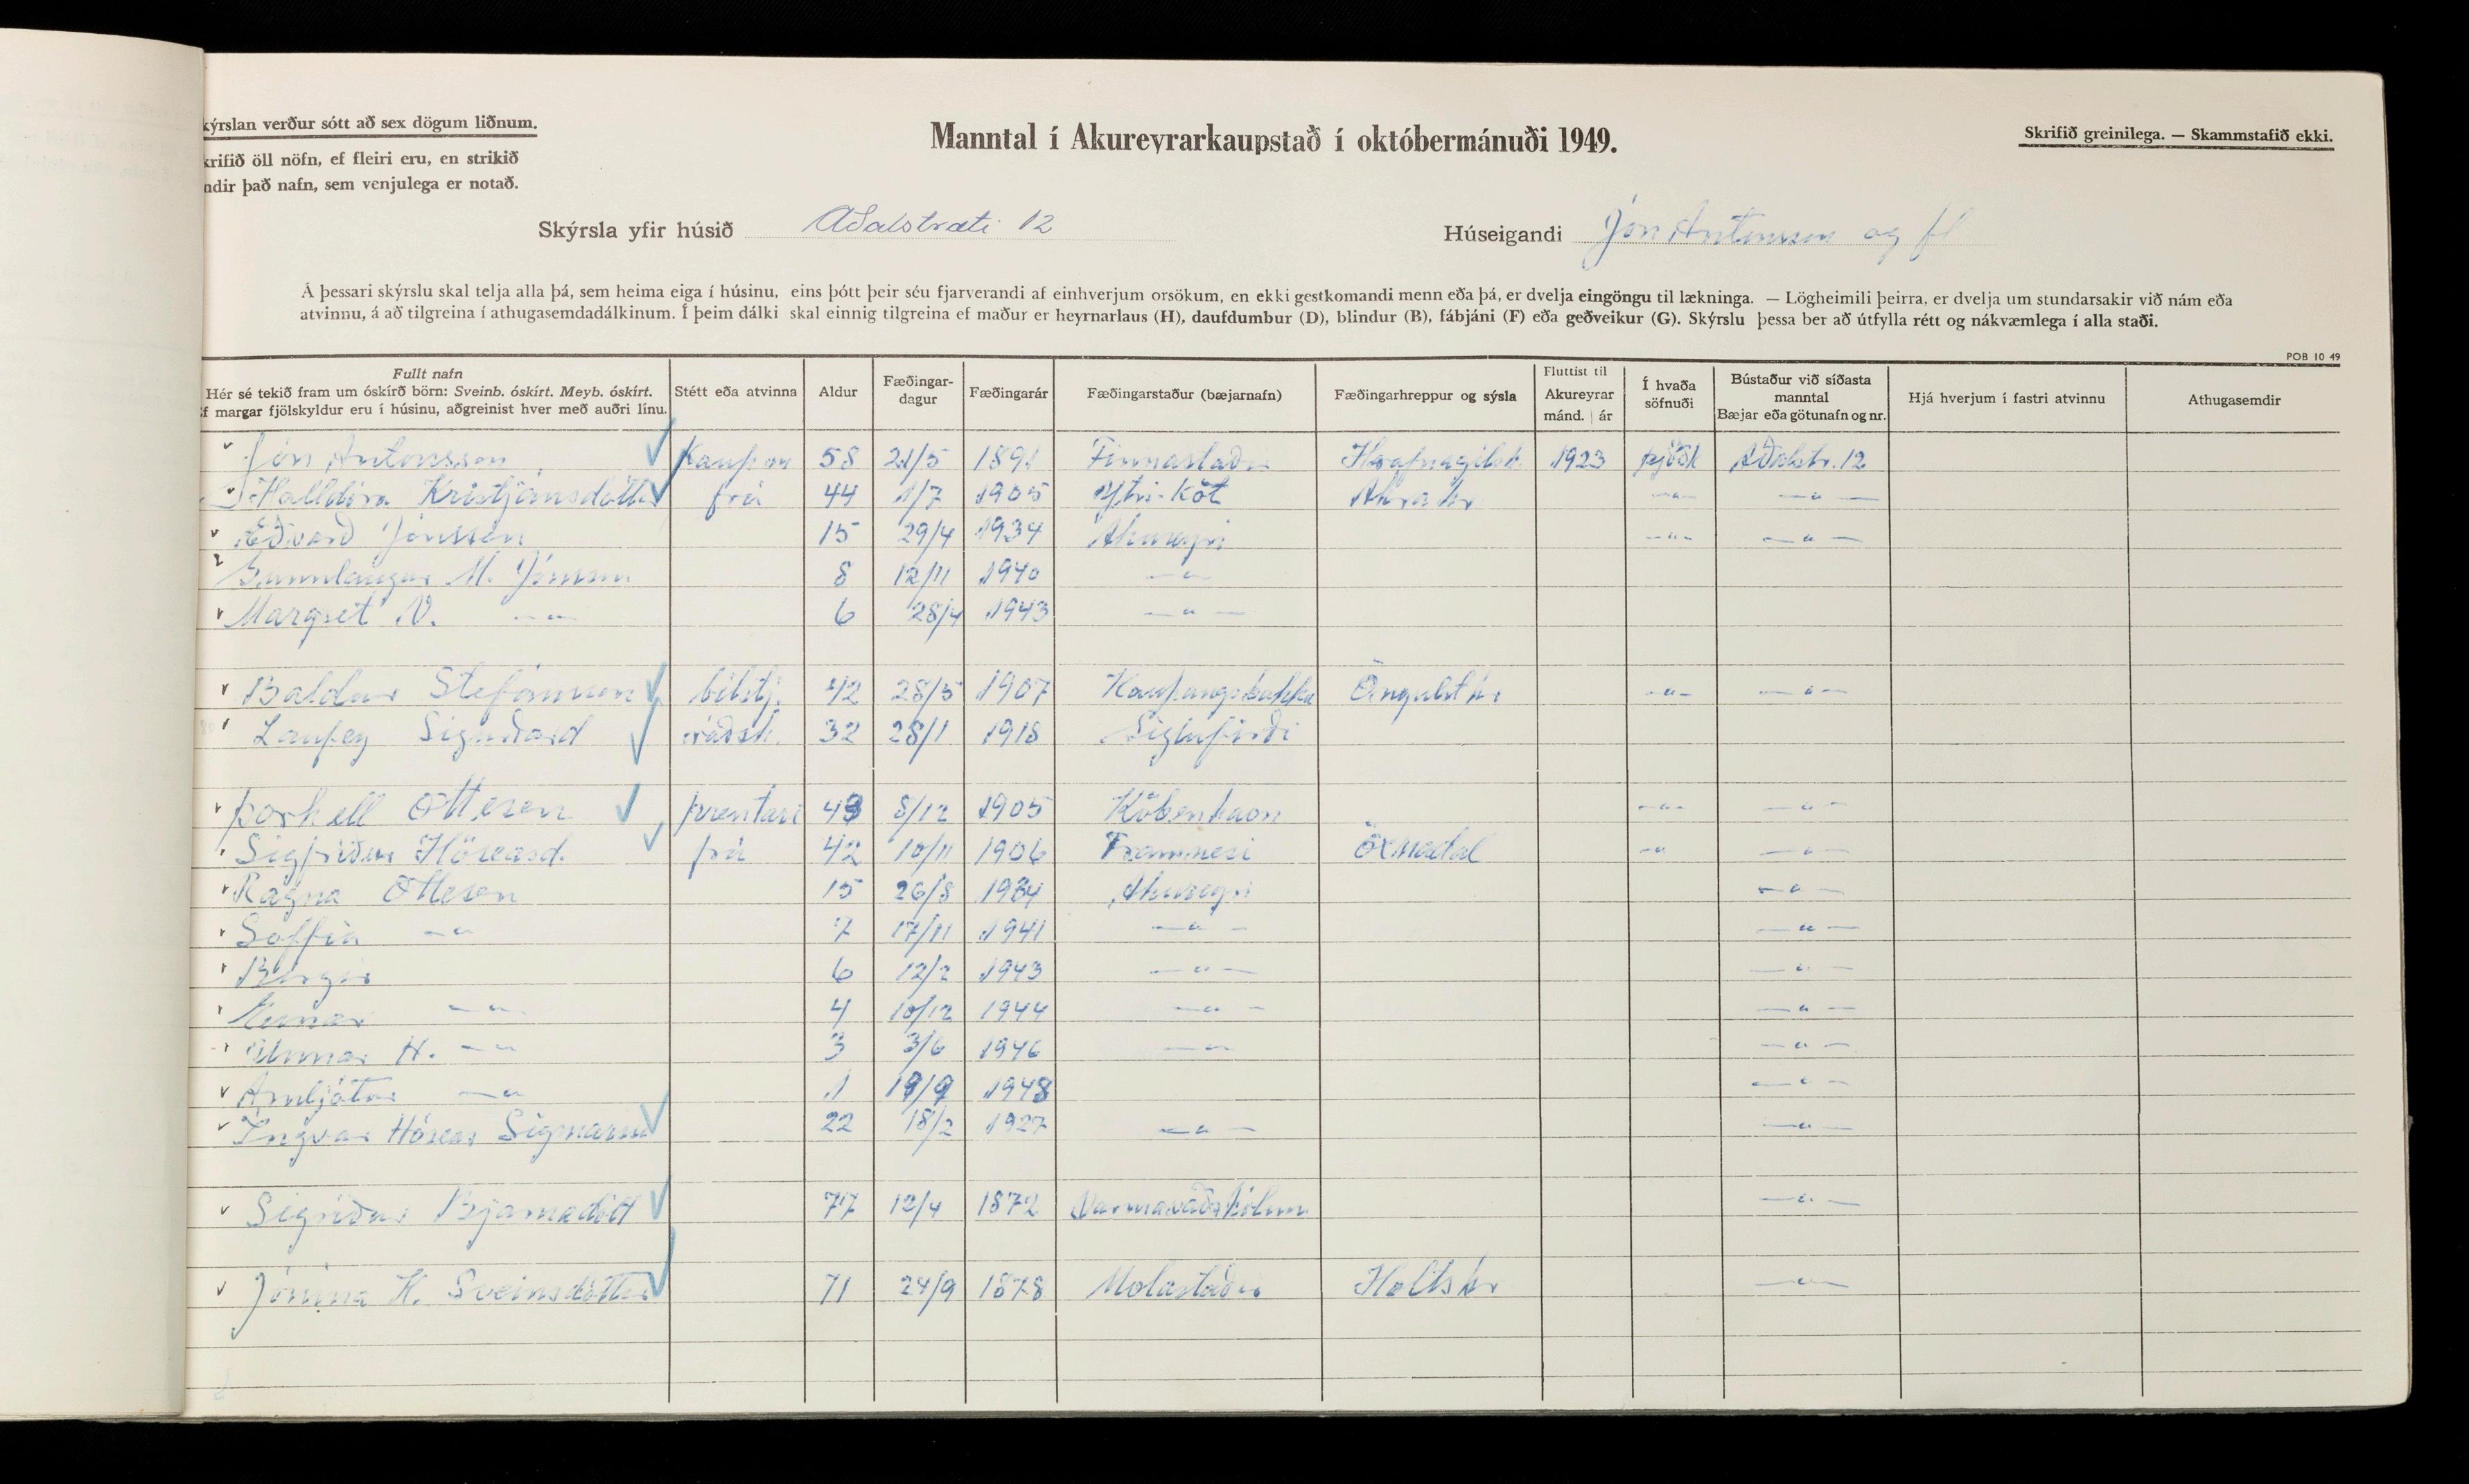 kýrslan verður sótt að sex dögum liðnum.
krifið öll nöfn, ef fleiri eru, en strikið
ndir það nafn, sem venjulega er notað.
Manntal í Akureyrarkaupstað í októbermánuði 1949.
Skrifið greinilega. — Skammstafið ekki.
Skýrsla yfir húsið Aðalstræti 12 Húseigandi Jón Antonsson og fl
Á þessari skýrslu skal telja alla þá, sem heima eiga í húsinu, eins þótt þeir séu fjarverandi af einhverjum orsökum, en ekki gestkomandi menn eða þá, er dvelja eingöngu til lækninga. — Lögheimili þeirra, er dvelja um stundarsakir við nám eða
atvinnu, á að tilgreina í athugasemdadálkinum. Í þeim dálki skal einnig tilgreina ef maður er heyrnarlaus (H), daufdumbur (D), blindur (B), fábjáni (F) eða geðveikur (G). Skýrslu þessa ber að útfylla rétt og nákvæmlega í alla staði.
POB 10 49
Fullt nafn Hér sé tekið fram um óskírð börn: Sveinb. óskírt. Meyb. óskírt. f margar fjölskyldur eru í húsinu, aðgreinist hver með auðri línu. Stétt eða atvinna Aldur Fæðingar-dagur Fæðingarár Fæðingarstaður (bæjarnafn) Fæðingarhreppur og sýsla Fluttist til Akureyrar mánd. ár Í hvaða söfnuði Bústaður við síðasta manntal Bæjar eða götunafn og nr. Hjá hverjum í fastri atvinnu Athugasemdir
Jón Antonsson 58 21/5 1891 Finnastaðir Hrafnagilsh. 1923 þjóðk Aðalstr. 12
Halldóra Kristjánsdóttir frú 44 1/7 1905 Ytri-Kot Akrahr —"— —"—
Eðvarð Jónsson 15 29/4 1934 Akureyri —"— —"—
Gunnlaugur M. Jónsson 8 12/11 1940 —"—
Margrét N. —"— 6 28/4 1943 —"—
Baldur Stefánsson bílstj. 42 28/5 1907 Kaupangsbakka Öngulst hr —"— —"—
Laufey Sigurðard ráðsk. 32 28/1 1918 Siglufirði
Þorkell Ottesen prentari 43 8/12 1905 Köbenhavn —"— —"—
Sigfríður Hóseasd. frú 42 10/11 1906 Framnesi Öxnadal —"— —"—
Ragna Ottesen 15 26/8 1934 Akureyri —"—
Soffía —"— 7 17/11 1941 —"— —"—
Birgir 6 12/2 1943 —"— —"—
—"— 4 10/12 1944 —"— —"—
H. —"— 3 3/6 1946 —"— —"—
Arnljótur —"— 1 19/9 1948 —"—
Ingvar Hóseas Sigmarss 22 18/2 1927 —"— —"—
Sigríður Bjarnadótt 77 12/4 1872 —"—
Jónína H. Sveinsdóttir 71 24/9 1878 Molastaðir Holtshr —"—